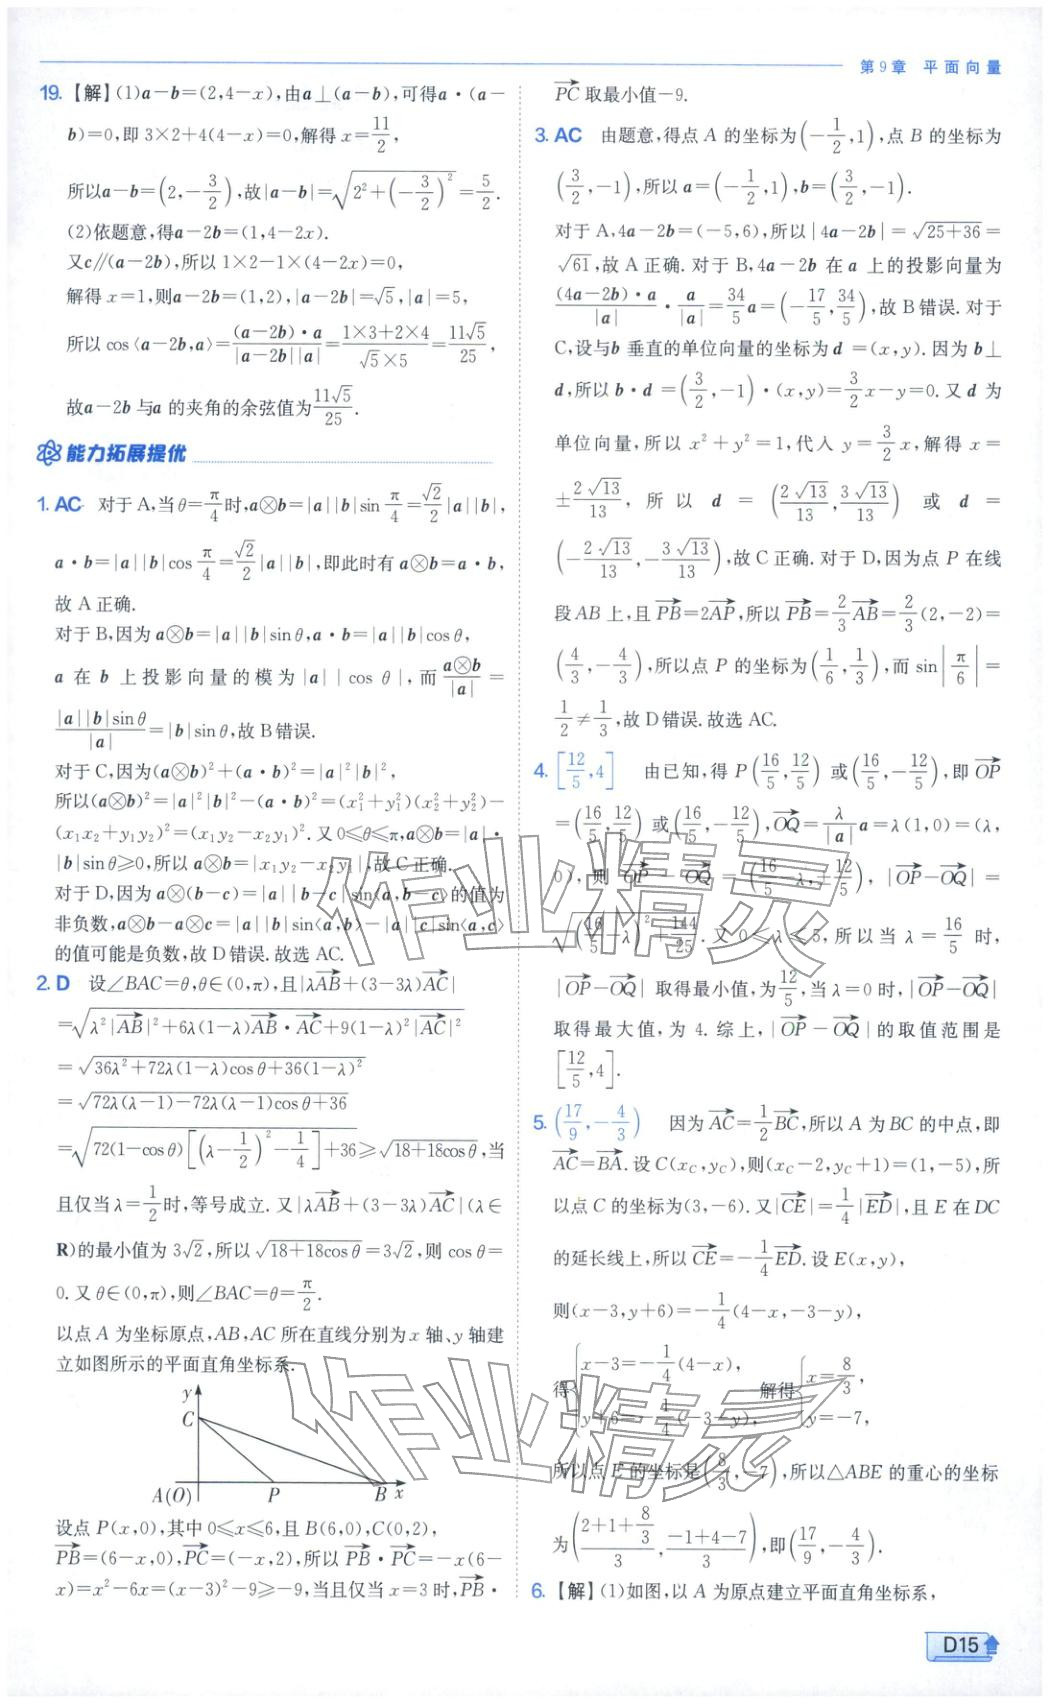 第9章 平面向量
19. 【解】(1)a-b=(2,4-x),由a⊥(a-b),可得a·(a-
b)=0,即 3×2+4(4-x)=0,解得 x=11/2,
所以a-b=(2,-3/2),故|a-b|=√(2²+(-3/2)²)=5/2.
(2)依题意,得a-2b=(1,4-2x).
又c∥(a-2b),所以 1×2-1×(4-2x)=0,
解得 x=1,则a-2b=(1,2),|a-2b|=√5,|a|=5,
所以 cos⟨a-2b,a⟩=(a-2b)·a/|a-2b||a|=(1×3+2×4)/(√5×5)=11√5/25,
故a-2b 与a 的夹角的余弦值为11√5/25.
能力拓展提优
1. AC 对于 A,当 θ=π/4时,a⊗b=|a||b|sin π/4=√2/2|a||b|,
a·b=|a||b|cos π/4=√2/2|a||b|,即此时有 a⊗b=a·b,
故 A 正确.
对于 B,因为 a⊗b=|a||b|sin θ,a·b=|a||b|cos θ,
a 在 b 上投影向量的模为|a||cos θ|,而a⊗b/|a|=
|a||b|sin θ/|a|=|b|sin θ,故 B 错误.
对于 C,因为(a⊗b)²+(a·b)²=|a|²|b|²,
所以(a⊗b)²=|a|²|b|²-(a·b)²=(x₁²+y₁²)(x₂²+y₂²)-
(x₁x₂+y₁y₂)²=(x₁y₂-x₂y₁)².又 0≤θ≤π,a⊗b=|a|·
|b|sin θ≥0,所以 a⊗b=|x₁y₂-x₂y₁|,故 C 正确.
对于 D,因为 a⊗(b-c)=|a||b-c|sin⟨a,b-c⟩的值为
非负数,a⊗b-a⊗c=|a||b|sin⟨a,b⟩-|a||c|sin⟨a,c⟩
的值可能是负数,故 D 错误.故选 AC.
2. D 设∠BAC=θ,θ∈(0,π),且|λAB→+(3-3λ)AC→|
=√(λ²|AB→|²+6λ(1-λ)AB→·AC→+9(1-λ)²|AC→|²)
=√(36λ²+72λ(1-λ)cos θ+36(1-λ)²)
=√(72λ(λ-1)-72λ(λ-1)cos θ+36)
=√(72(1-cos θ)[(λ-1/2)²-1/4]+36)≥√(18+18cos θ),当
且仅当 λ=1/2时,等号成立.又|λAB→+(3-3λ)AC→|(λ∈
R)的最小值为 3√2,所以√(18+18cos θ)=3√2,则 cos θ=
0.又 θ∈(0,π),则∠BAC=θ=π/2.
以点 A 为坐标原点,AB,AC 所在直线分别为 x 轴、y 轴建
立如图所示的平面直角坐标系.
y
C
A(O) P B x
设点 P(x,0),其中 0≤x≤6,且 B(6,0),C(0,2),
PB→=(6-x,0),PC→=(-x,2),所以 PB→·PC→=-x(6-
x)=x²-6x=(x-3)²-9≥-9,当且仅当 x=3 时,PB→·
PC→取最小值-9.
3. AC 由题意,得点 A 的坐标为(-1/2,1),点 B 的坐标为
(3/2,-1),所以 a=(-1/2,1),b=(3/2,-1).
对于 A,4a-2b=(-5,6),所以|4a-2b|=√(25+36)=
√61,故 A 正确.对于 B,4a-2b 在 a 上的投影向量为
(4a-2b)·a/|a|·a/|a|=34/5a=(-17/5,34/5),故 B 错误.对于
C,设与b 垂直的单位向量的坐标为 d=(x,y).因为 b⊥
d,所以 b·d=(3/2,-1)·(x,y)=3/2x-y=0.又 d 为
单位向量,所以 x²+y²=1,代入 y=3/2x,解得 x=
±2√13/13,所以 d=(2√13/13,3√13/13)或 d=
(-2√13/13,-3√13/13),故 C 正确.对于 D,因为点 P 在线
段AB 上,且PB→=2AP→,所以PB→=2/3AB→=2/3(2,-2)=
(4/3,-4/3),所以点 P 的坐标为(1/6,1/3),而 sin|π/6|=
1/2≠1/3,故 D 错误.故选 AC.
4. [12/5,4] 由已知,得 P(16/5,12/5)或(16/5,-12/5),即OP→
=(16/5,12/5)或(16/5,-12/5),OQ→=λ/|a|a=λ(1,0)=(λ,
0),则 OP→-OQ→=(16/5-λ,±12/5),|OP→-OQ→|=
√((16/5-λ)²+144/25).又 0≤λ≤5,所以当 λ=16/5时,
|OP→-OQ→|取得最小值,为12/5,当 λ=0 时,|OP→-OQ→|
取得最大值,为 4.综上,|OP→-OQ→|的取值范围是
[12/5,4].
5. (17/9,-4/3) 因为AC→=1/2BC→,所以 A 为 BC 的中点,即
AC→=BA→.设 C(x_C,y_C),则(x_C-2,y_C+1)=(1,-5),所
以点 C 的坐标为(3,-6).又|CE→|=1/4|ED→|,且 E 在 DC
的延长线上,所以 CE→=-1/4ED→.设 E(x,y),
则(x-3,y+6)=-1/4(4-x,-3-y),
得{x-3=-1/4(4-x), y+6=-1/4(-3-y), 解得{x=8/3, y=-7,
所以点 E 的坐标是(8/3,-7),所以△ABE 的重心的坐标
为((2+1+8/3)/3,(-1+4-7)/3),即(17/9,-4/3).
6. 【解】(1)如图,以 A 为原点建立平面直角坐标系,
D15
作业精灵
作业精灵